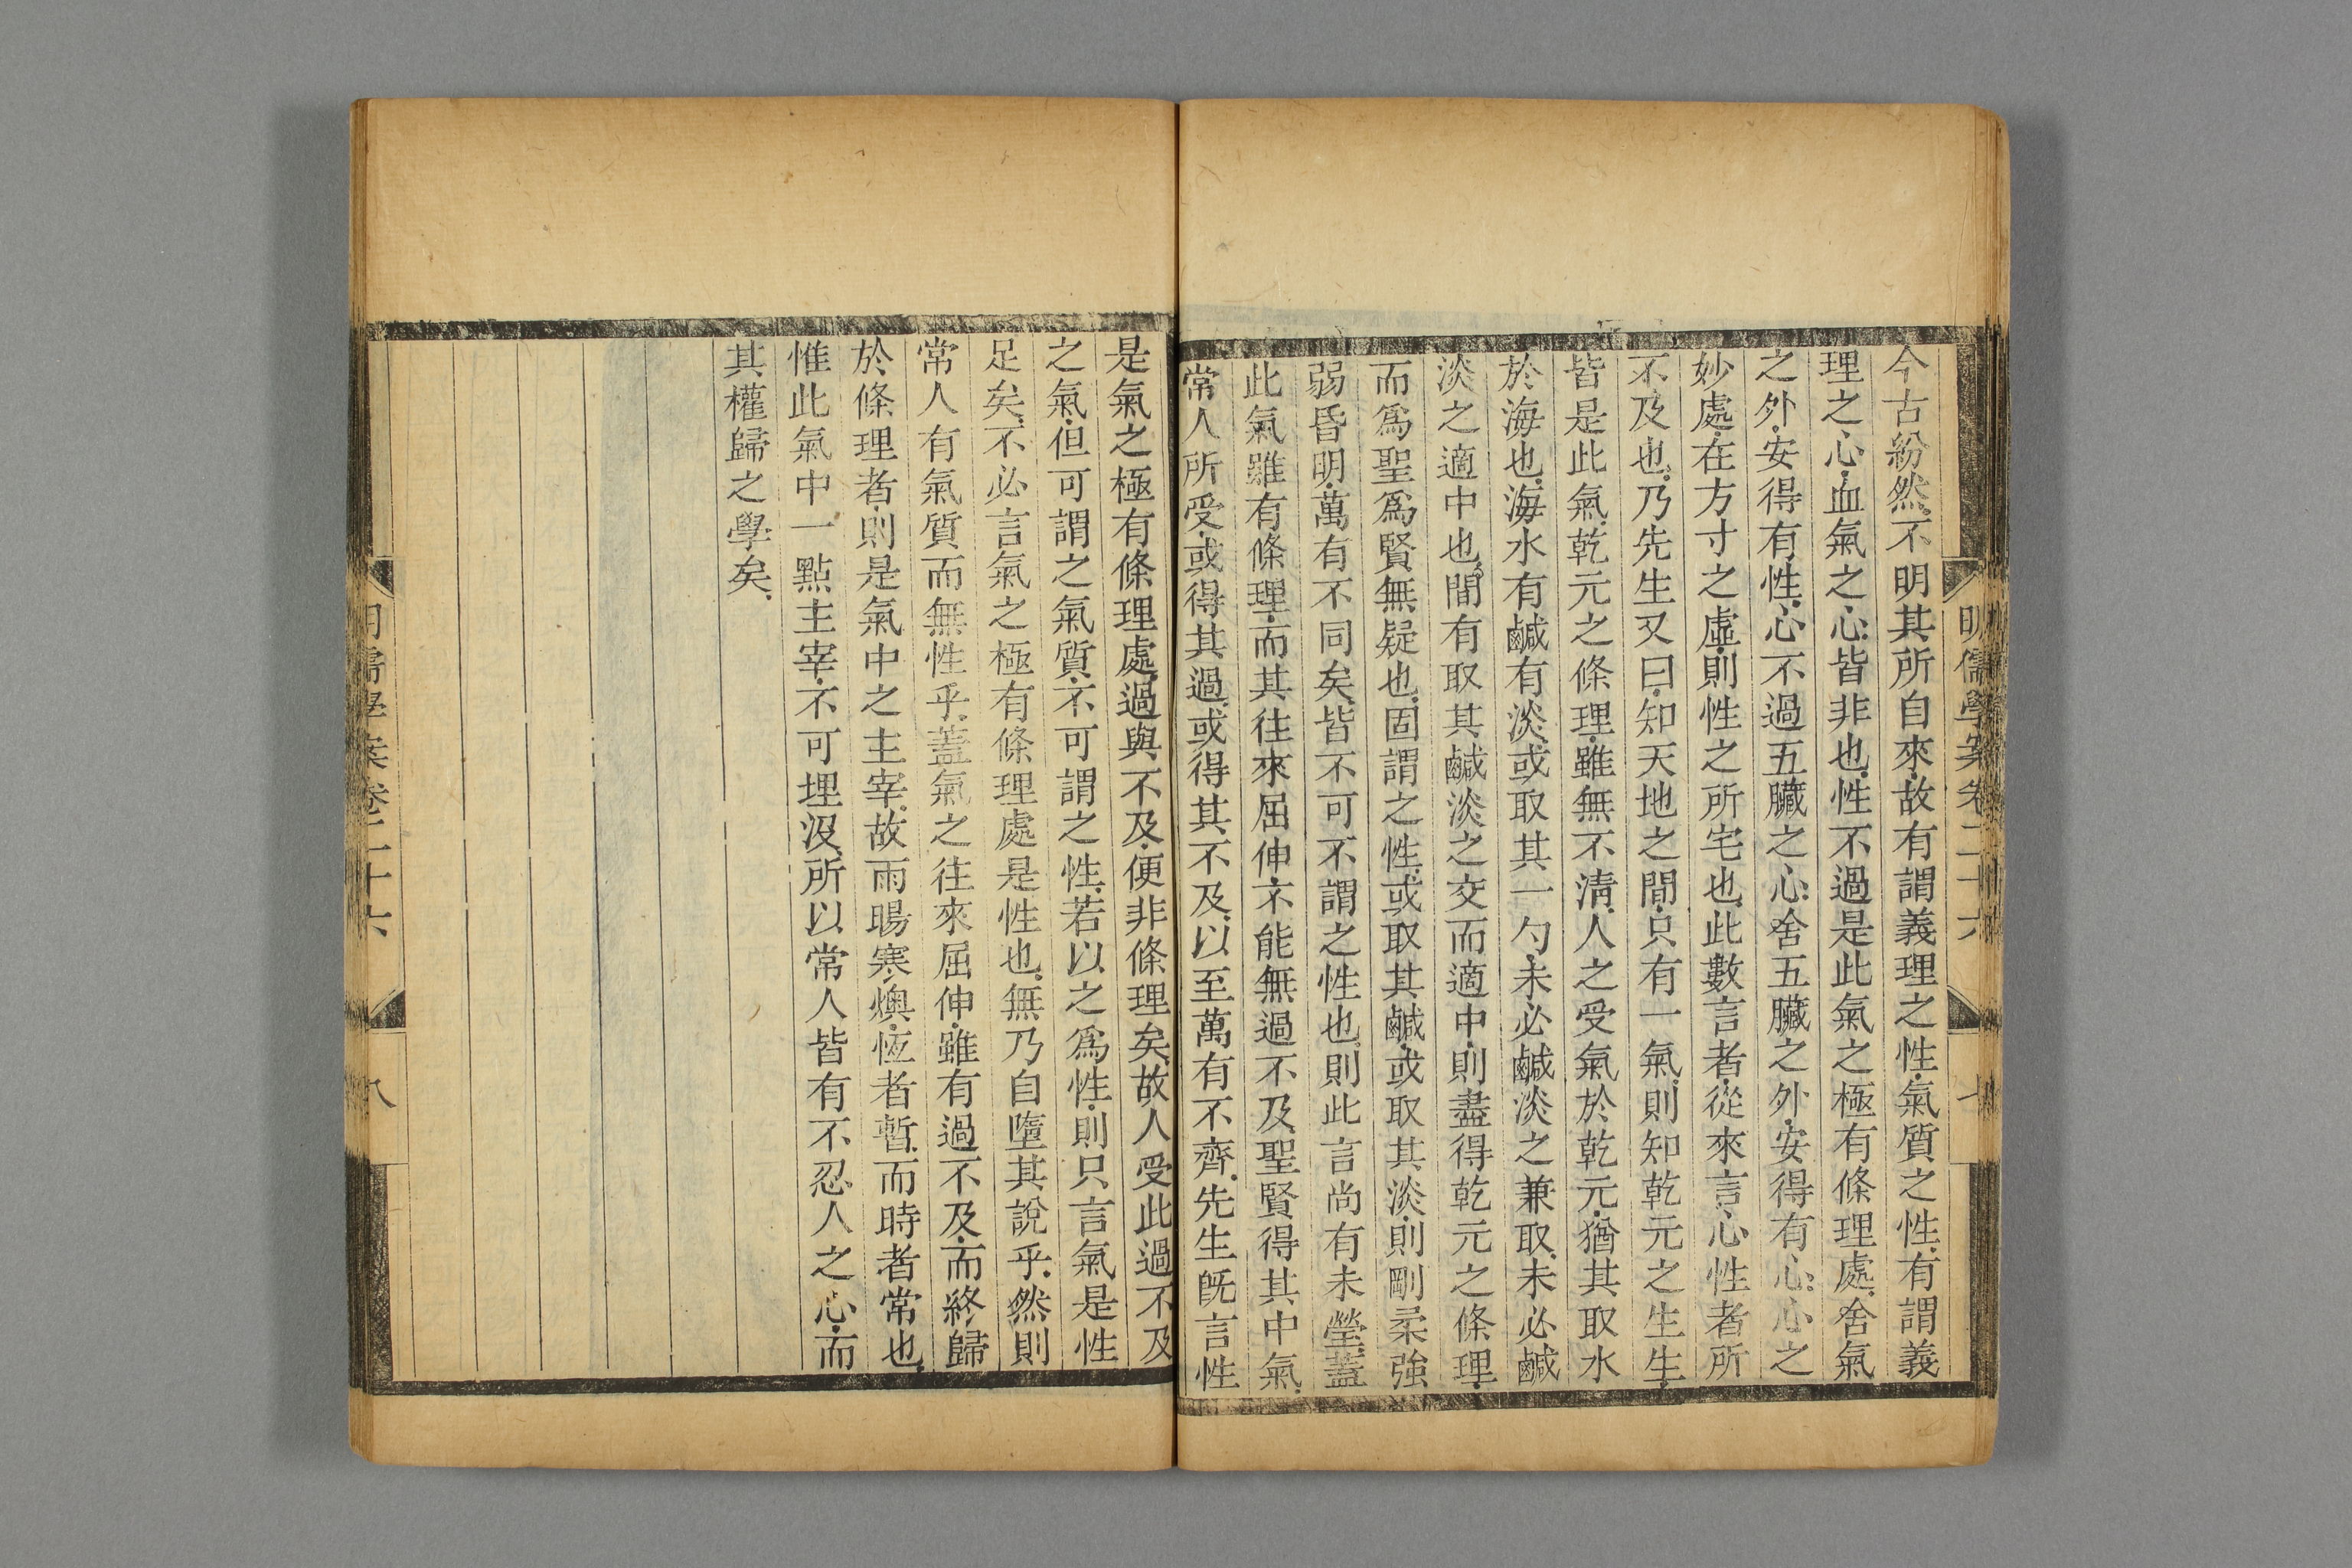 明儒學案卷二十六
七
今古紛然不明其所自來故有謂義理之性氣質之性有謂義
理之心血氣之心皆非也性不過是此氣之極有條理處舍氣
之外安得有性心不過五臟之心舍五臟之外安得有心心之
妙處在方寸之虛則性之所宅也此數言者從來言心性者所
不及也乃先生又曰知天地之間只有一氣則知乾元之生生
皆是此氣乾元之條理雖無不淸人之受氣於乾元猶其取水
於海也海水有鹹有淡或取其一勺未必鹹淡之兼取未必鹹
淡之適中也間有取其鹹淡之交而適中則盡得乾元之條理
而爲聖爲賢無疑也固謂之性或取其鹹或取其淡則剛柔強
弱昏明萬有不同矣皆不可不謂之性也則此言尚有未瑩蓋
此氣雖有條理而其往來屈伸不能無過不及聖賢得其中氣
常人所受或得其過或得其不及以至萬有不齊先生旣言性
是氣之極有條理處過與不及便非條理矣故人受此過不及
之氣但可謂之氣質不可謂之性若以之爲性則只言氣是性
足矣不必言氣之極有條理處是性也無乃自墮其說乎然則
常人有氣質而無性乎蓋氣之往來屈伸雖有過不及而終歸
於條理者則是氣中之主宰故雨暘寒燠恆者暫而時者常也
惟此氣中一點主宰不可埋沒所以常人皆有不忍人之心而
其權歸之學矣
明儒學案卷二十六
八